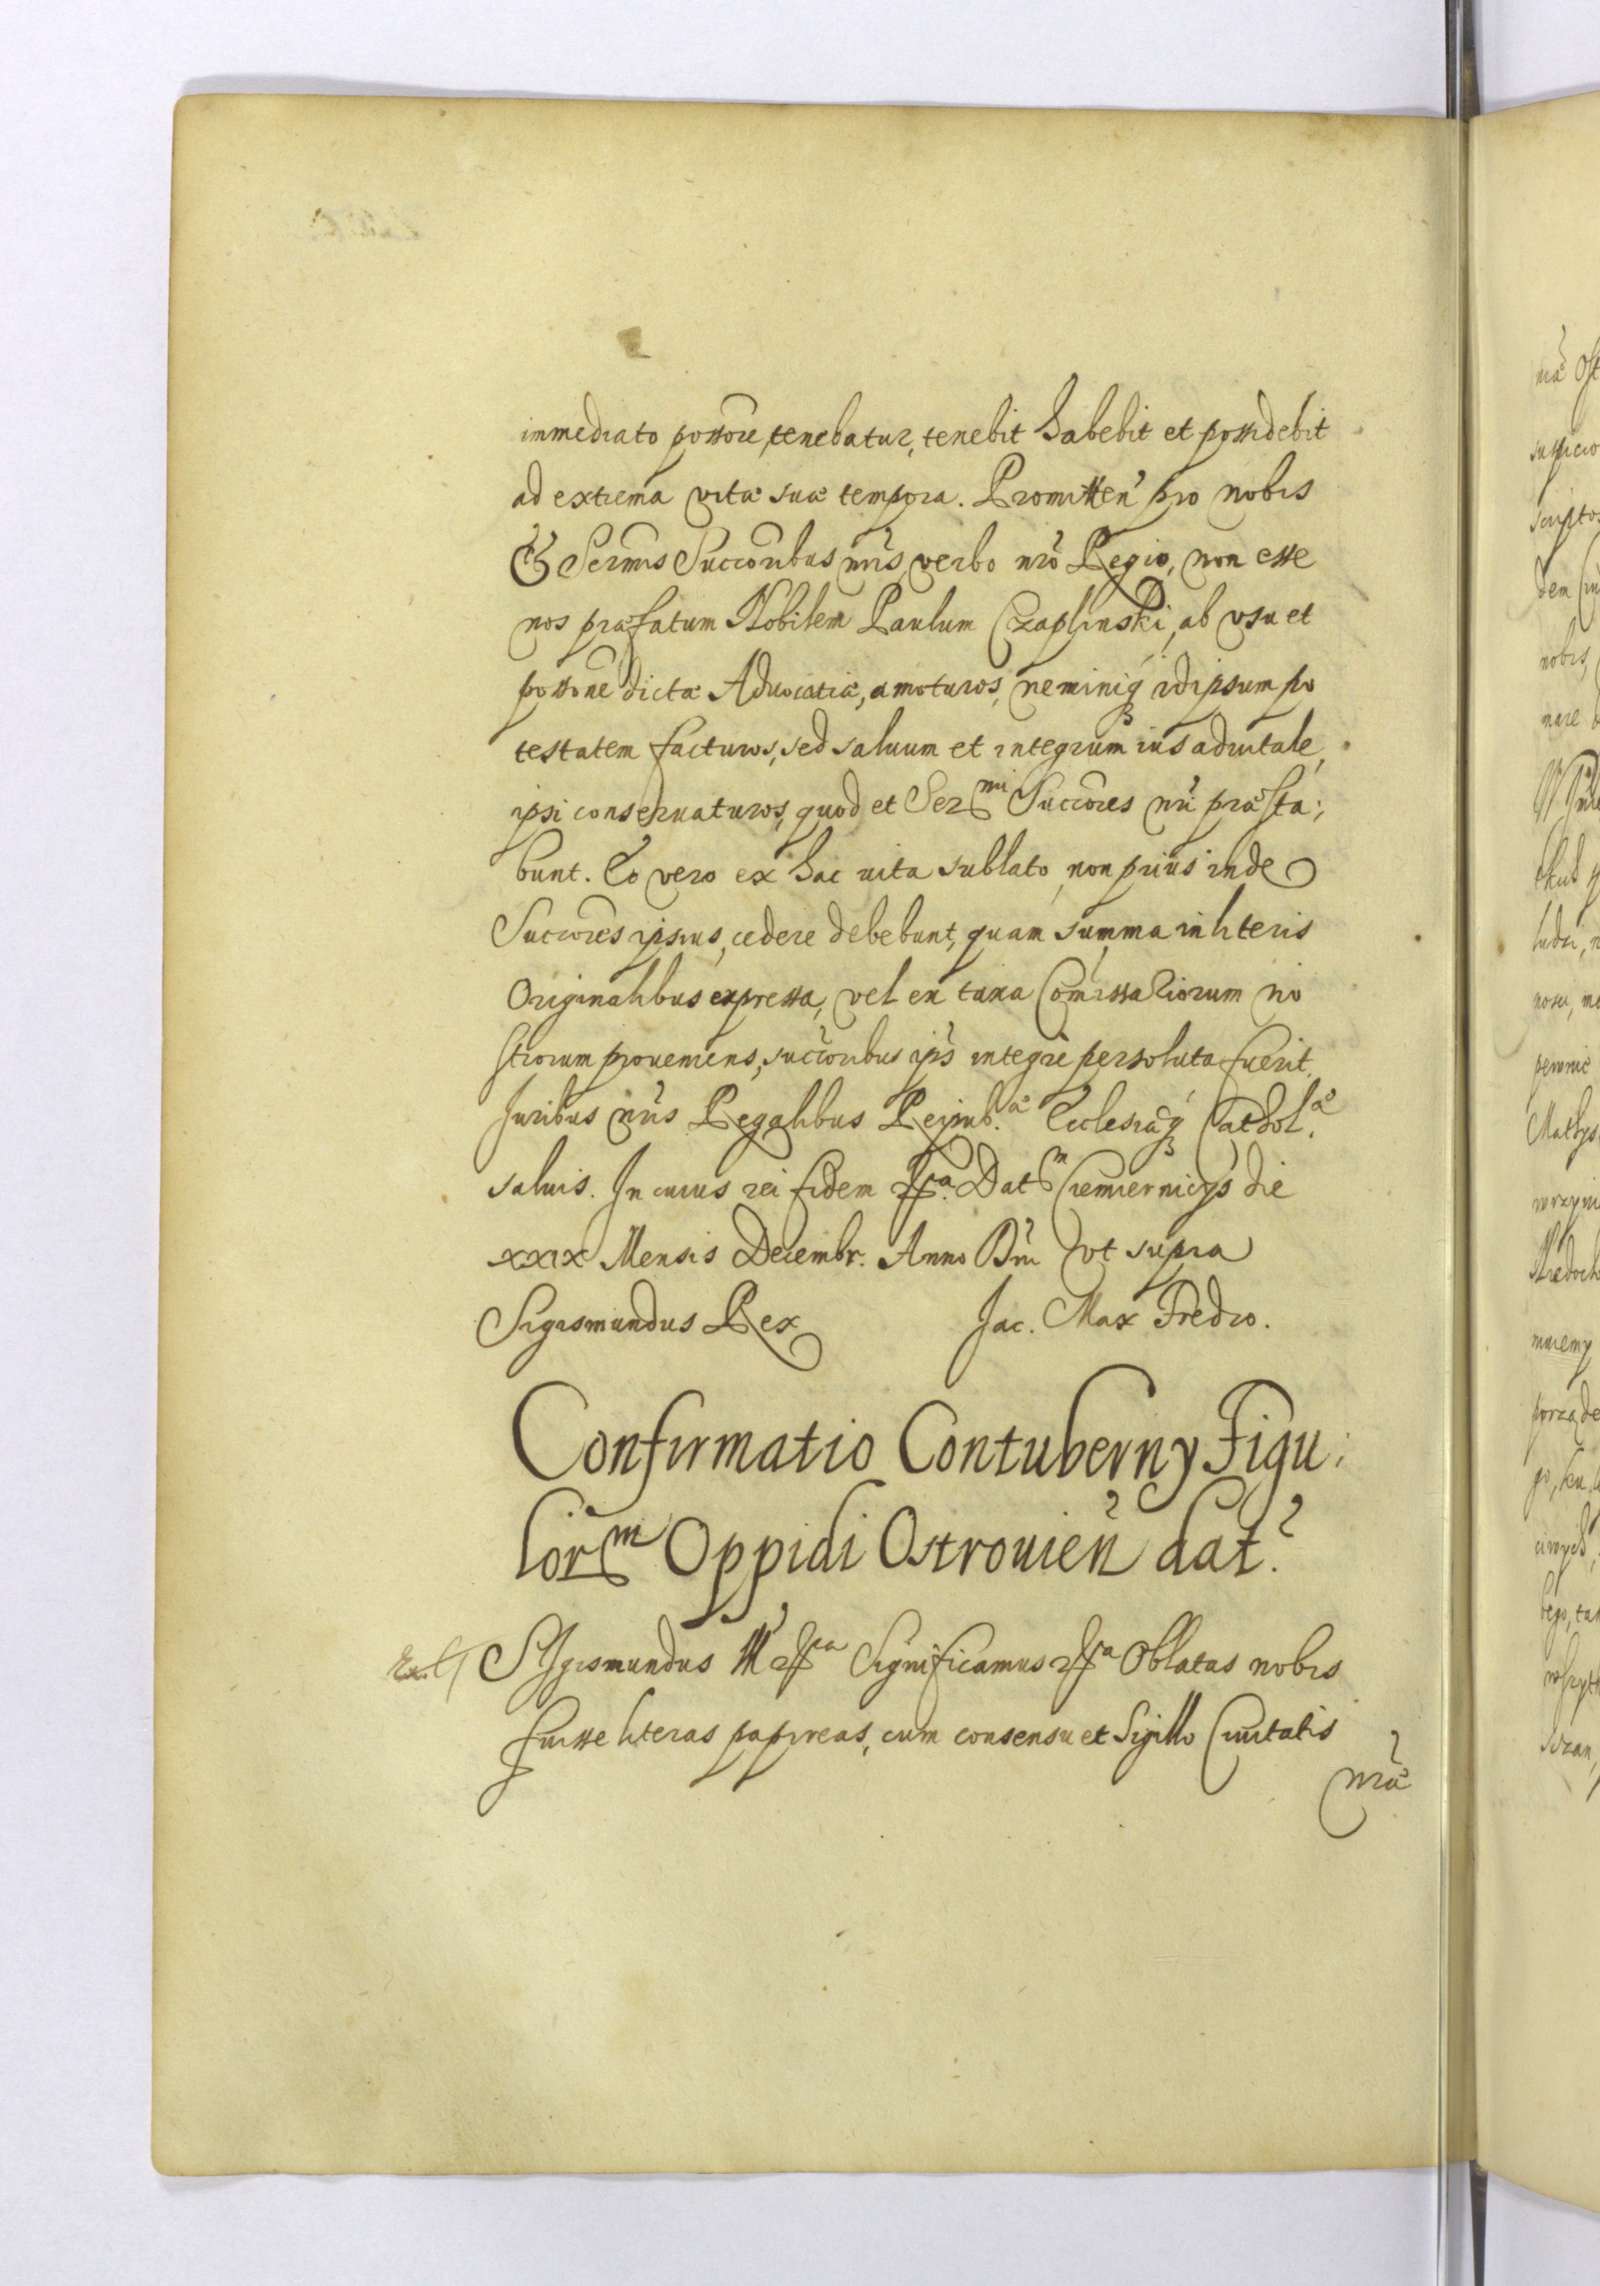 immediato possōre, tenebatur, tenebit habebit et possidebit
ad extrema vitæ suæ tempora. Promitten̄ pro nobis
& Sermis Succōribus nr̄is, verbo nr̄o Regio, non esse
nos præfatum Nobilem Paulum Czaplinski, ab vsu et
possōne dictæ Aduocatiæ, amoturos, neminiq3 idipsum po
testatem facturos, sed saluum et integrum ius aduitale,
ipsi conseruaturos, quod et Ser^mi Succōres nr̄i præsta:
bunt. Eo vero ex hac uita sublato, non prius inde
Succōres ipsius, cedere debebunt, quam summa in literis
Originalibus expressa, vel ex taxa Com̄issariorum no
strorum proueniens, succōribus ip̄s integrè persoluta fuerit.
Juribus nr̄is Regalibus Reipub.æ Ecclesiæq3 Cathol.æ
saluis. In cuius rei fidem &c^a. Dat^m Ciemiernicijs die
XXIX Mensis Decembr. Anno Dn̄i vt supra
Sigismundus Rex Jac. Max Fredro.
Confirmatio Contuberny Figu:
lor^m Oppidi Ostrouien̄ dat.
SIgismundus III &c^a Significamus &c^a Oblatas nobis
fuisse literas papireas, cum consensu et Sigillo Ciuitatis
nr̄æ